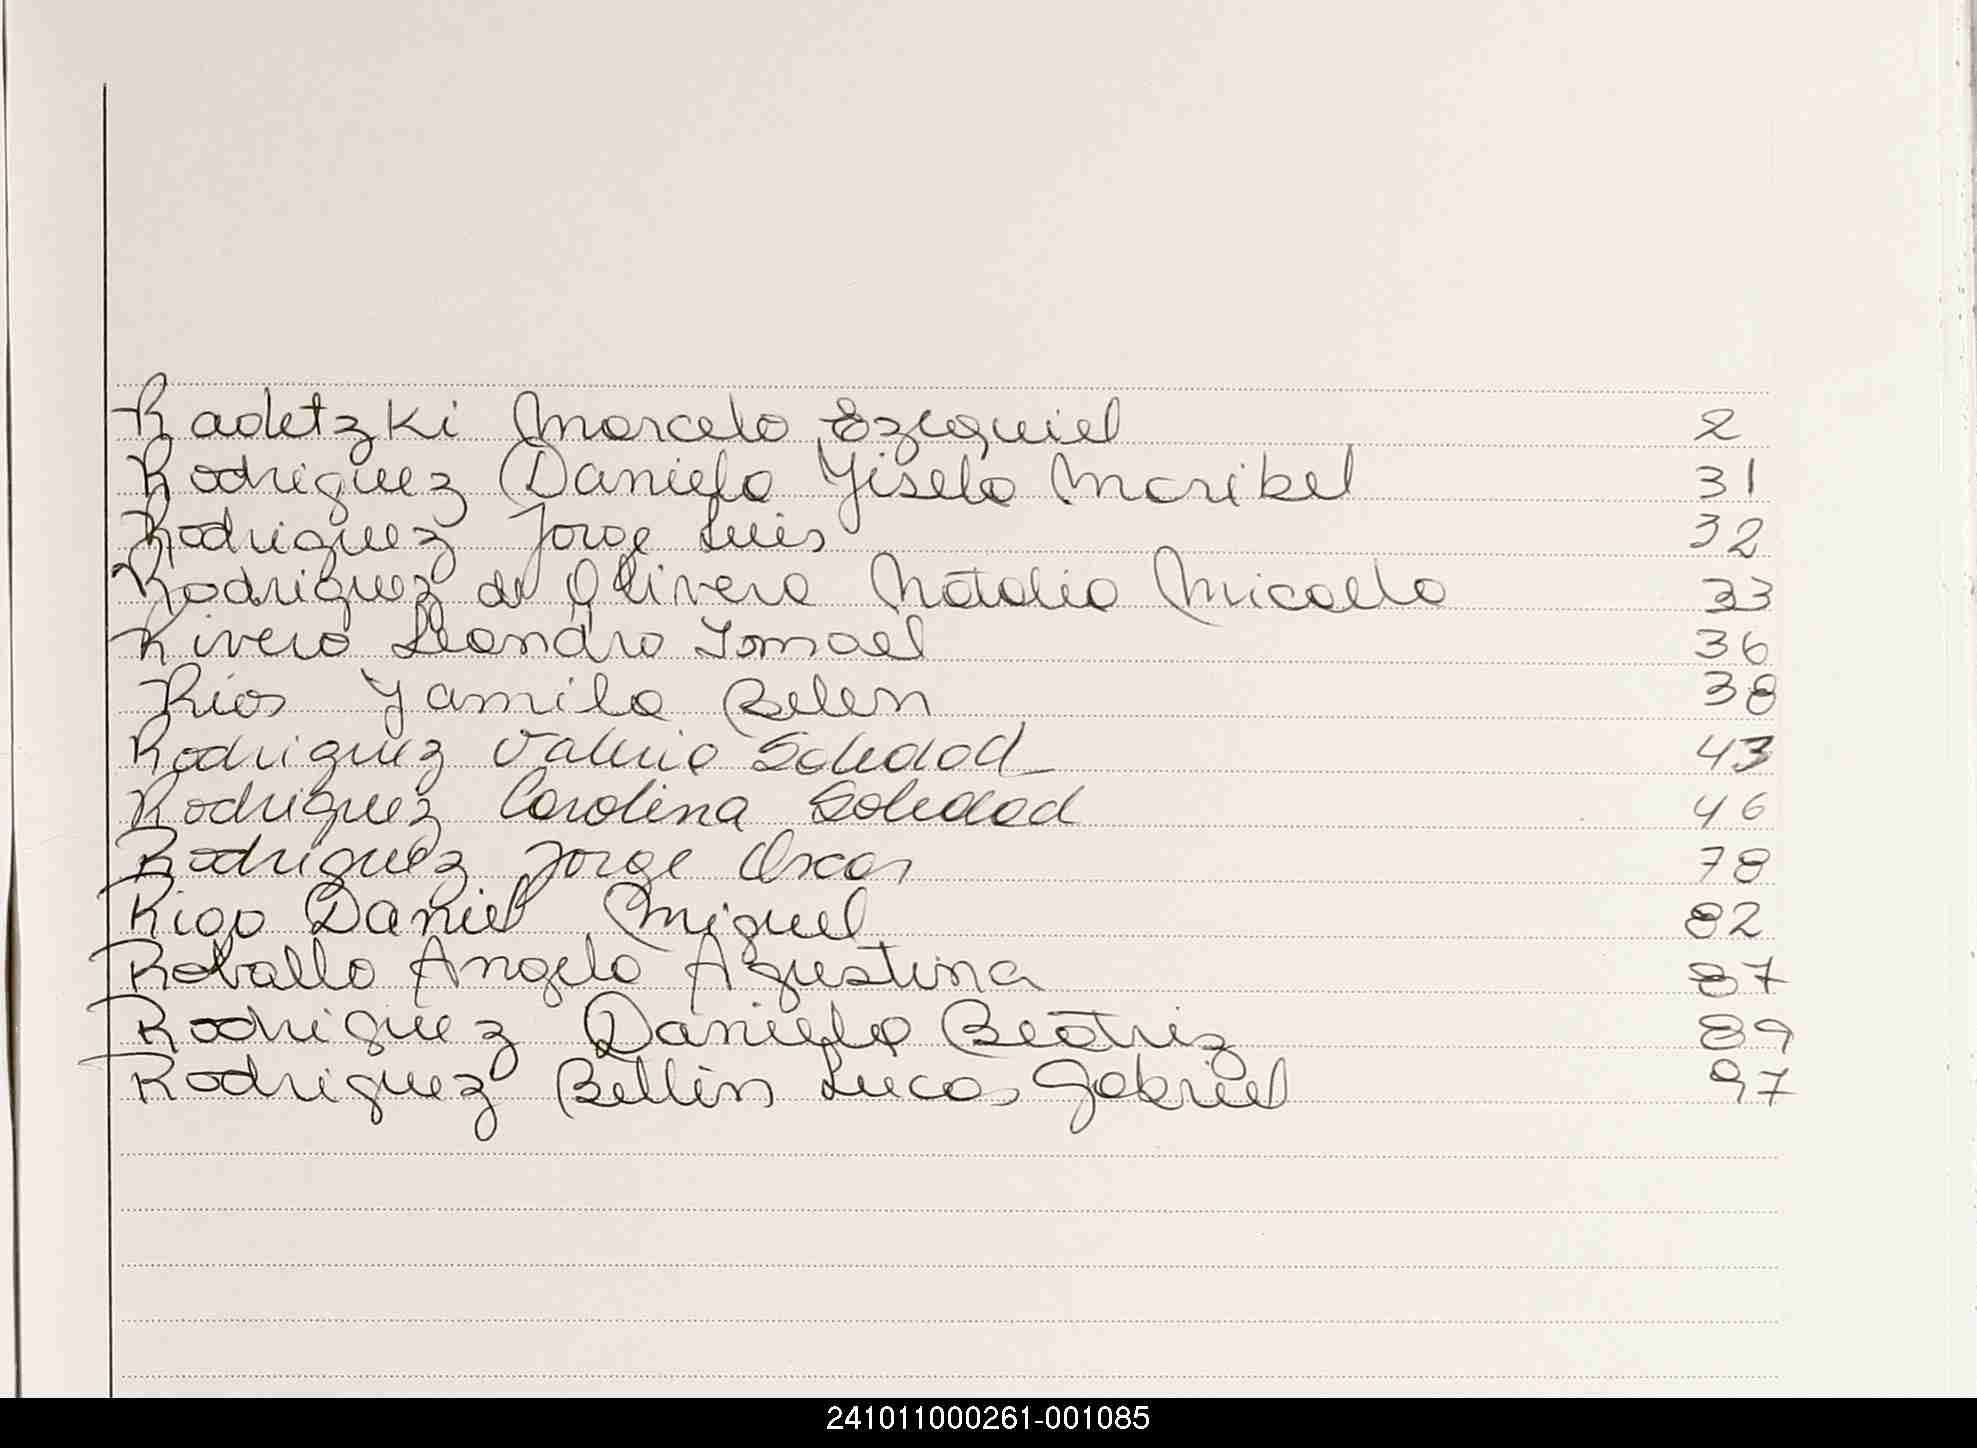 Radetzki Marcelo Ezequiel 2
Rodriguez Daniela Yisela Maribel 31
Rodriguez Jorge Luis 32
Rodriguez de Olivera Natalia Micaela 33
Rivero Leandro Ismael 36
Rios Yamila Belen 38
Rodriguez Valeria Soledad 43
Rodriguez Carolina Soledad 46
Rodriguez Jorge Oscar 78
Rigo Daniel Miguel 82
Roballo Angela Agustina 87
Rodriguez Daniela Beatriz 89
Rodriguez Bellin Lucas Gabriel 97
241011000261-001085